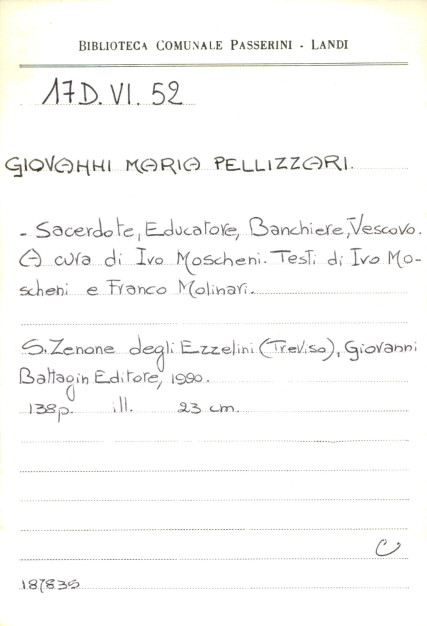 BIBLIOTECA COMUNALE PASSERINI - LANDI
17D. VI. 52
GIOVANNI MARIA PELLIZZARI.
- Sacerdote, Educatore, Banchiere, Vescovo.
A cura di Ivo Moscheni. Testi di Ivo Mo-
scheni e Franco Molinari.
S. Zenone degli Ezzelini (Treviso), Giovanni
Battagin Editore, 1990.
138p. ill. 23 cm.
C
187835